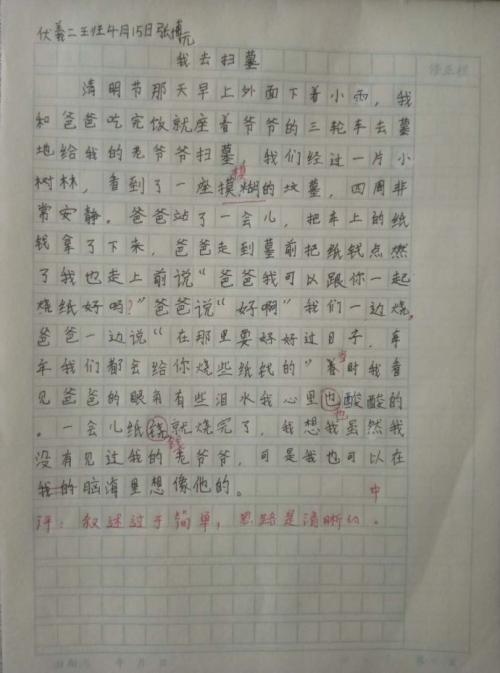 伏羲二王班4月15日张博元
我去扫墓
修正栏
清明节那天早上外面下着小雨，我
和爸爸吃完饭就座着爷爷的三轮车去墓
地给我的老爷爷扫墓，我们经过一片小
模
树林，看到了一座摸糊的坟墓，四周非
常安静。爸爸站了一会儿，把车上的纸
钱拿了下来，爸爸走到墓前把纸钱点燃
了我也走上前说“爸爸我可以跟你一起
烧纸好吗？”爸爸说“好啊”我们一边烧，
爸爸一边说“在那里要好好过日子，年
年我们都会给你烧些纸钱的”当时我看
见爸爸的眼角有些泪水我心里也酸酸的
也
。一会儿纸就烧完了，我想我虽然我
钱
没有见过我的老爷爷，可是我也可以在
我的脑海里想像他的。
中
评：叙述过于简单，思路是清晰的。
年 月 日